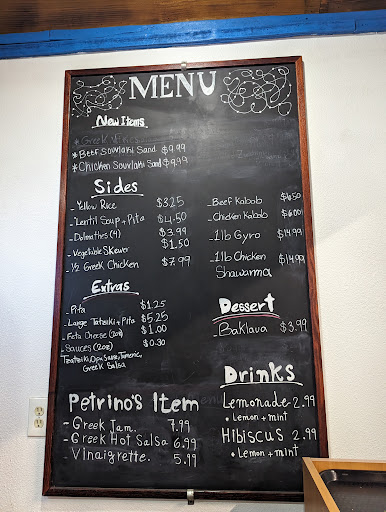 MENU
New Items
* Beef Souvlaki Sand $9.99
* Chicken Souvlaki Sand $9.99
Sides
- Yellow Rice $3.25
- Lentil Soup + Pita $4.50
- Dolmathes (4) $3.99
- Vegetable Skewer $1.50
- 1/2 Greek Chicken $7.99
- Beef Kabob $6.50
- Chicken Kabob $6.00
- 1lb Gyro $14.99
- 1lb Chicken Shawarma $14.99
Extras
- Pita $1.25
- Large Tatziki + Pita $5.25
- Feta Cheese (2oz) $1.00
- Sauces (2oz) $0.30
Tzatziki, Opa Sauce, Tumeric,
Greek Salsa
Dessert
- Baklava $3.99
Petrino's Item
- Greek Jam. 7.99
- Greek Hot Salsa 6.99
- Vinaigrette. 5.99
Drinks
Lemonade 2.99
• Lemon + mint
Hibiscus 2.99
• Lemon + mint